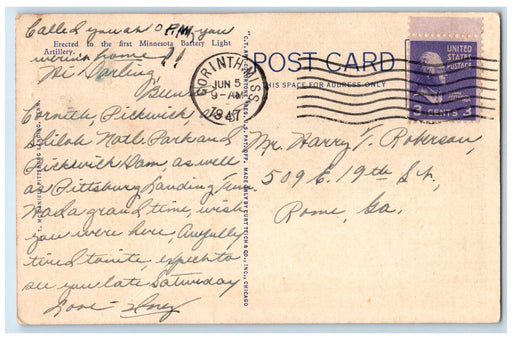 Called you at 10 P.M. you
Erected to the first Minnesota Battery Light
Artillery.
weren't home !!
Hi Darling
Been
Corinth, Pickwick,
Shiloh Natl. Park and
Pickwick Dam as well
as Pittsburg Landing Tenn.
Had a grand time, wish
you were here, Awfully
tired tonite, expect to
see you late Saturday
Love - Inez
POST CARD
THIS SPACE FOR ADDRESS ONLY
CORINTH, MISS.
JUN 5
9-AM
1947
UNITED
STATES
POSTAGE
3 CENTS 3
Mr. Harry T. Roberson
509 E. 19th St.,
Rome, Ga.
PITTSBURG LANDING, TENN.
MADE ONLY BY CURT TEICH & CO., INC., CHICAGO